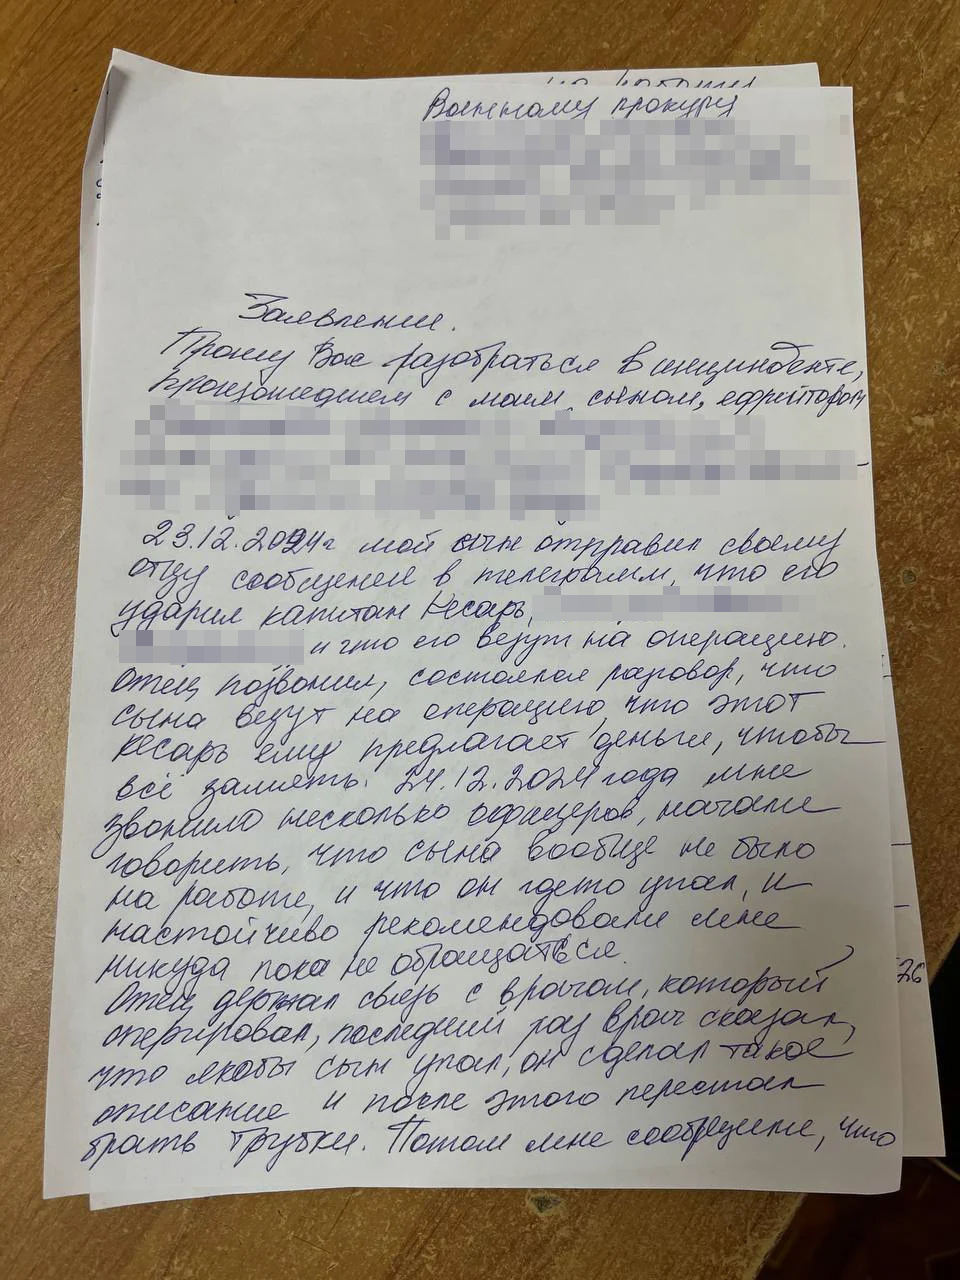 Военному прокуру
Заявление.
Прошу Вас разобраться в инциденте,
произошедшем с моим сыном, ефрейтором
23.12.2024г мой сын отправил своему
отцу сообщение в телеграмм, что его
ударил капитан Кесарь,
и что его везут на операцию.
Отец позвонил, состоялся разговор, что
сына везут на операцию, что этот
Кесарь ему предлагает деньги, чтобы
всё замять. 24.12.2024 года мне
звонило несколько офицеров, начали
говорить, что сына вообще не было
на работе, и что он где то упал, и
настойчиво рекомендовали мне
никуда пока не обращаться.
Отец держал связь с врачом, который
оперировал, последний раз врач сказал,
что якобы сын упал, он сделал такое
описание и после этого перестал
брать трубки. Потом мне сообщили, что
26